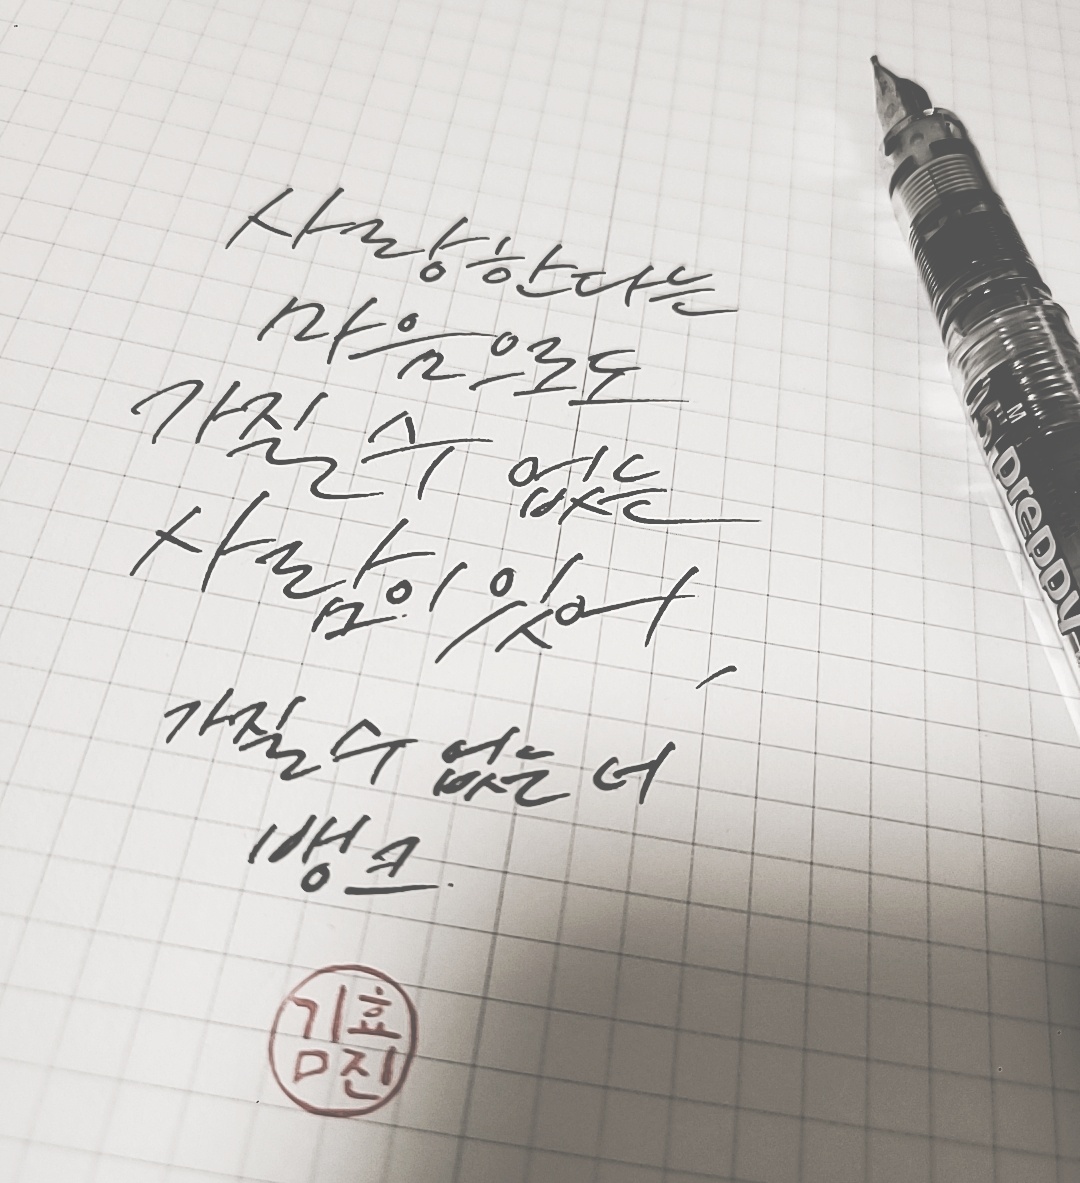 사랑한다는
마음으로도
가질 수 없는
사람이 있어,
가질 수 없는 너
뱅크.
김효진
05 M
Preppy